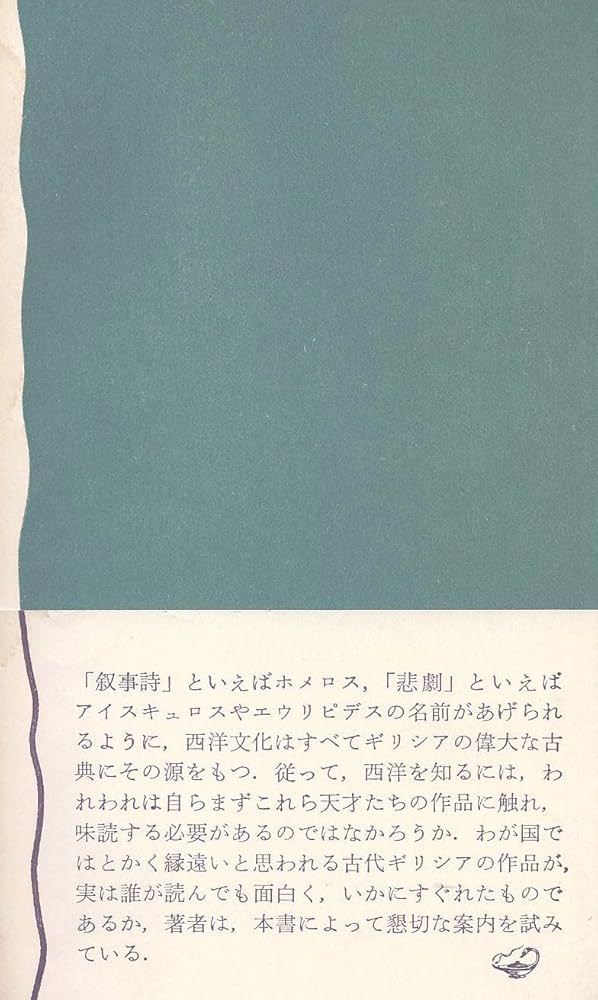 「叙事詩」といえばホメロス，「悲劇」といえば
アイスキュロスやエウリピデスの名前があげられ
るように，西洋文化はすべてギリシアの偉大な古
典にその源をもつ．従って，西洋を知るには，わ
れわれは自らまずこれら天才たちの作品に触れ，
味読する必要があるのではなかろうか．わが国で
はとかく縁遠いと思われる古代ギリシアの作品が，
実は誰が読んでも面白く，いかにすぐれたもので
あるか，著者は，本書によって懇切な案内を試み
ている．